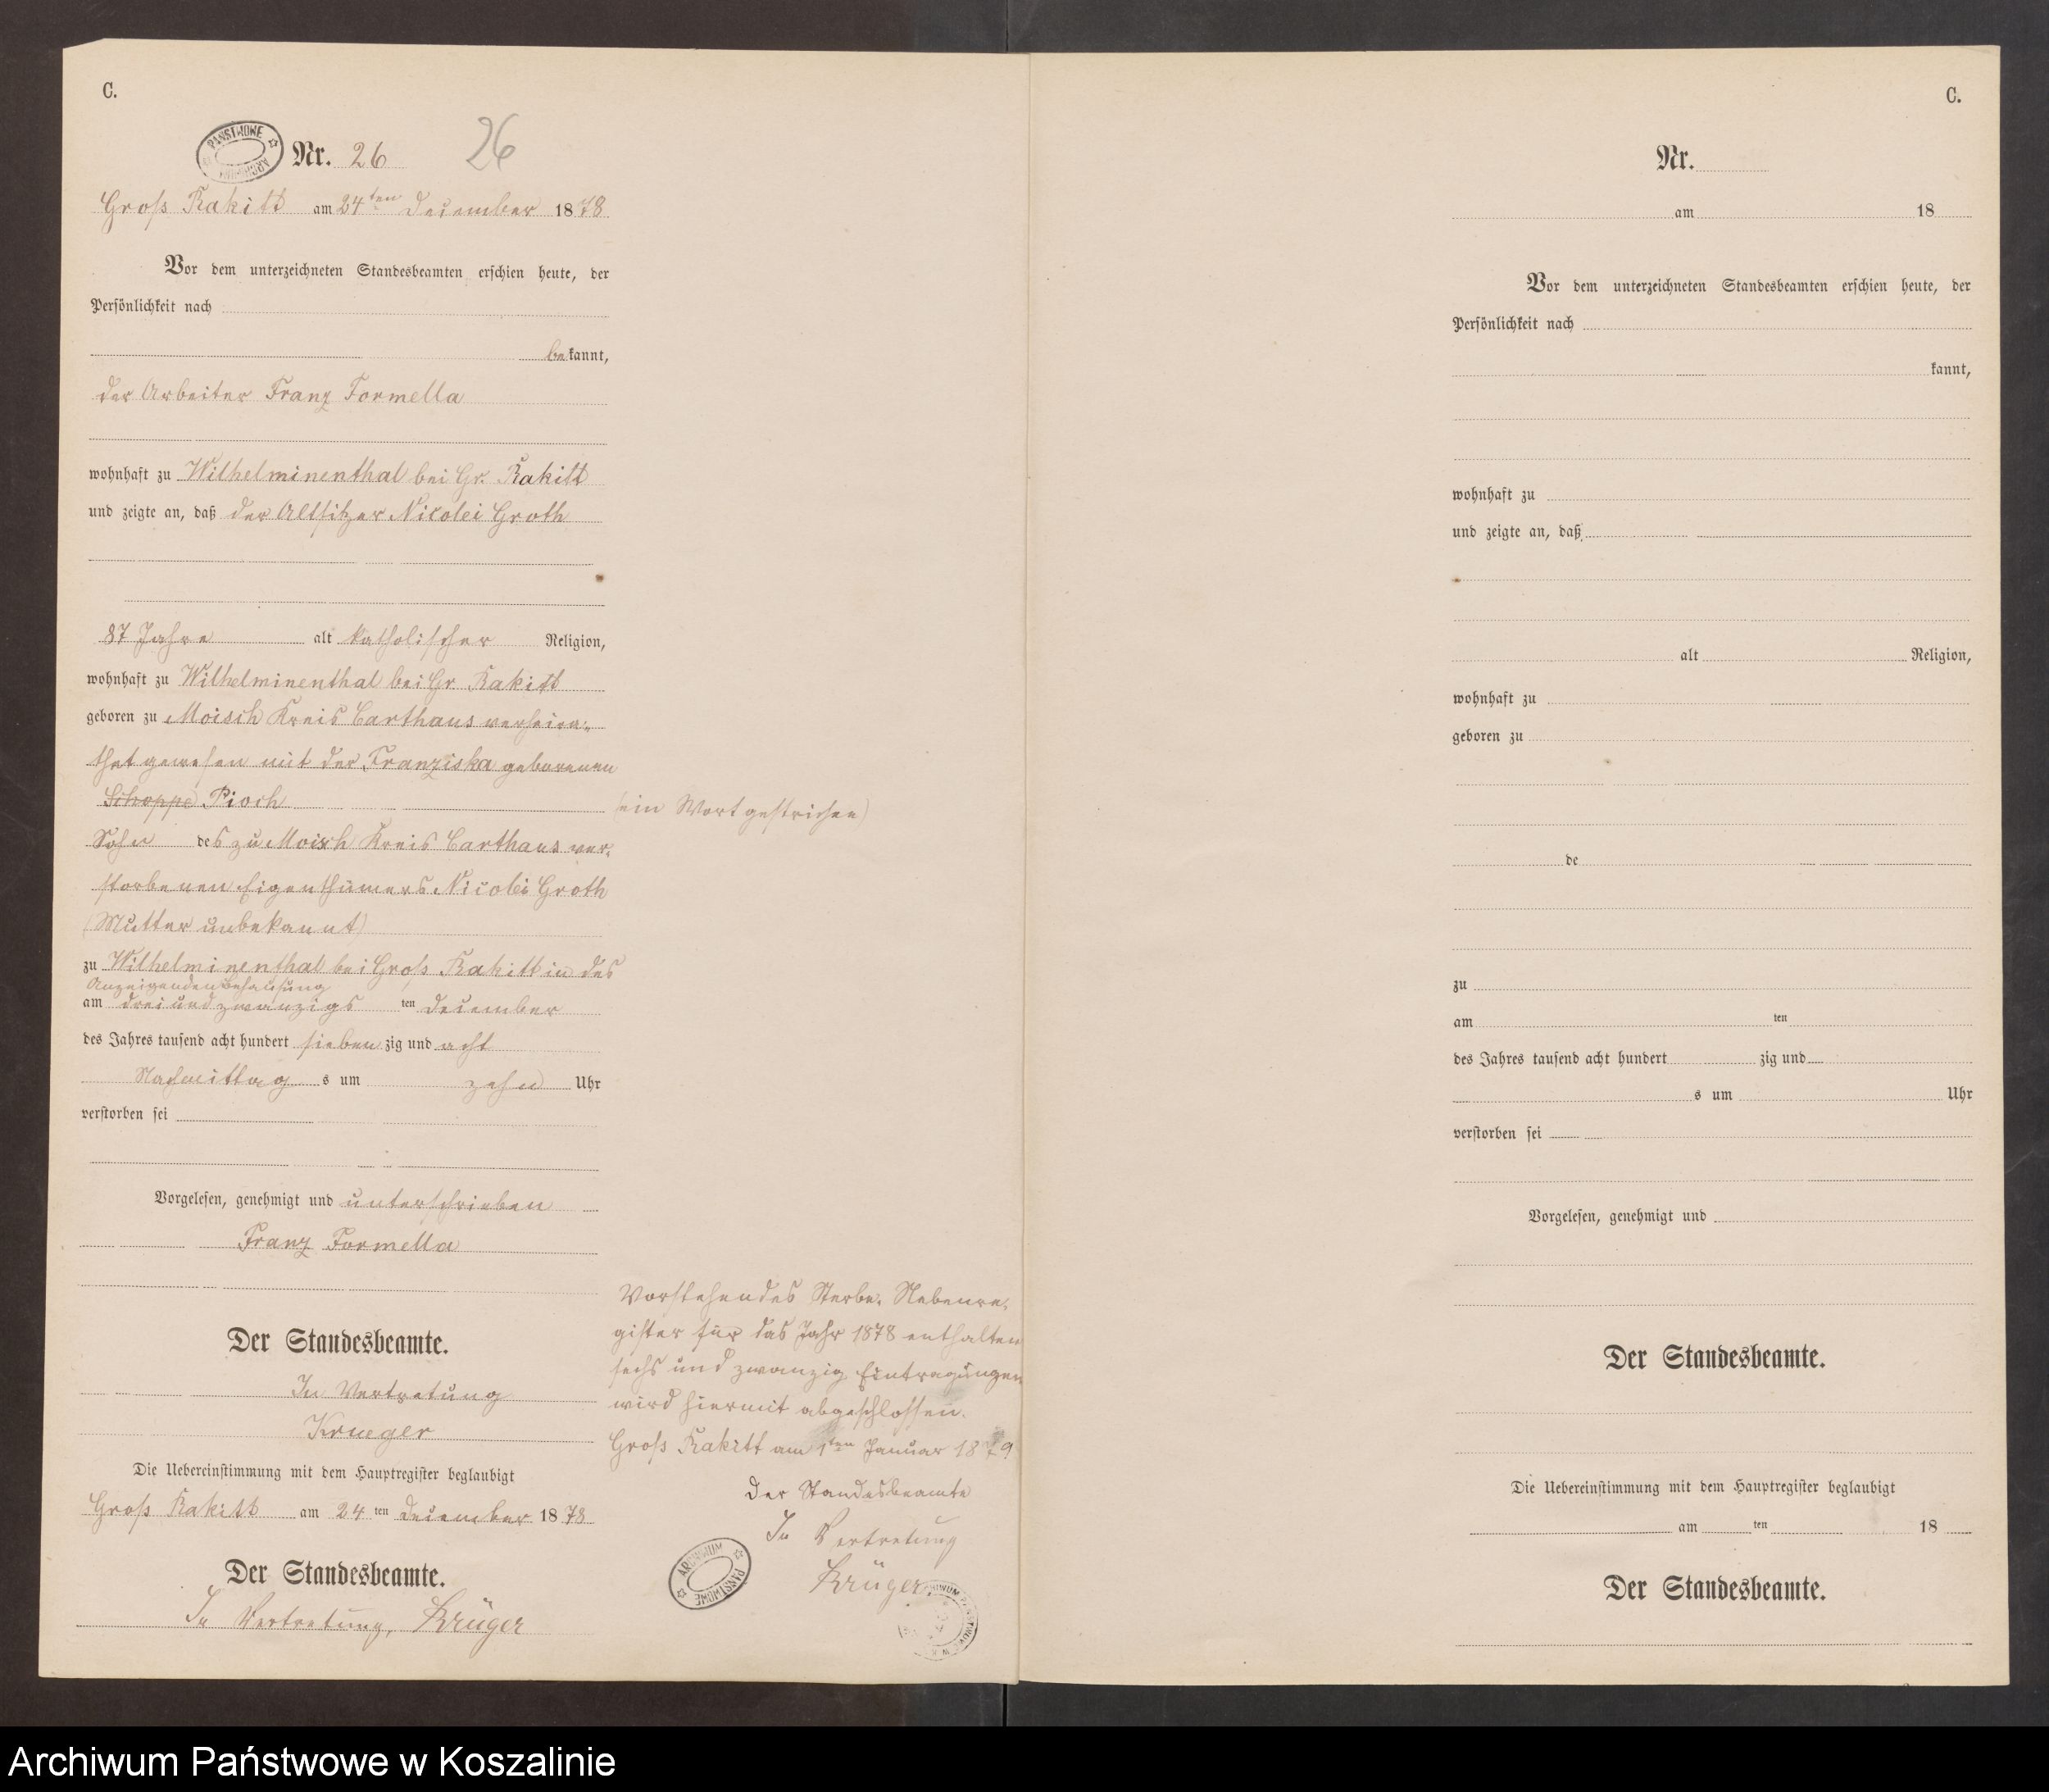 C.
PAŃSTWOWE
ARCHIWUM
Nr. 26
26
Gross Rakitt am 24ten December 1878
Vor dem unterzeichneten Standesbeamten erschien heute, der
Persönlichkeit nach
bekannt,
der Arbeiter Franz Formella
wohnhaft zu Wilhelminenthal bei Gr. Rakitt
und zeigte an, daß der Altsitzer Nicolei Groth
87 Jahre alt katholischer Religion,
wohnhaft zu Wilhelminenthal bei Gr Rakitt
geboren zu Moisch Kreis Carthaus verheira-
thet gewesen mit der Franziska geborenen
Schoppe Pioch (ein Wort gestrichen)
Sohn des zu Moisch Kreis Carthaus ver-
storbenen Eigenthümers Nicolei Groth
(Mutter unbekannt)
zu Wilhelminenthal bei Gross Rakitt in des
Anzeigenden Behausung
am drei und zwanzigs ten December
des Jahres tausend acht hundert sieben zig und acht
Nachmittag s um zehn Uhr
verstorben sei
Vorgelesen, genehmigt und unterschrieben
Franz Formella
Der Standesbeamte.
In Vertretung
Krueger
Die Uebereinstimmung mit dem Hauptregister beglaubigt
Gross Rakitt am 24 ten December 1878
Der Standesbeamte.
In Vertretung, Krüger
Vorstehendes Sterbe-Nebenre-
gister für das Jahr 1878 enthalten
sechs und zwanzig Eintragungen
wird hiermit abgeschlossen.
Gross Rakitt am 1ten Januar 1879
Der Standesbeamte
In Vertretung
Krüger
ARCHIWUM
PAŃSTWOWE
C.
Nr.
am 18
Vor dem unterzeichneten Standesbeamten erschien heute, der
Persönlichkeit nach
kannt,
wohnhaft zu
und zeigte an, daß
alt Religion,
wohnhaft zu
geboren zu
de
zu
am ten
des Jahres tausend acht hundert zig und
s um Uhr
verstorben sei
Vorgelesen, genehmigt und
Der Standesbeamte.
Die Uebereinstimmung mit dem Hauptregister beglaubigt
am ten 18
Der Standesbeamte.
Archiwum Państwowe w Koszalinie